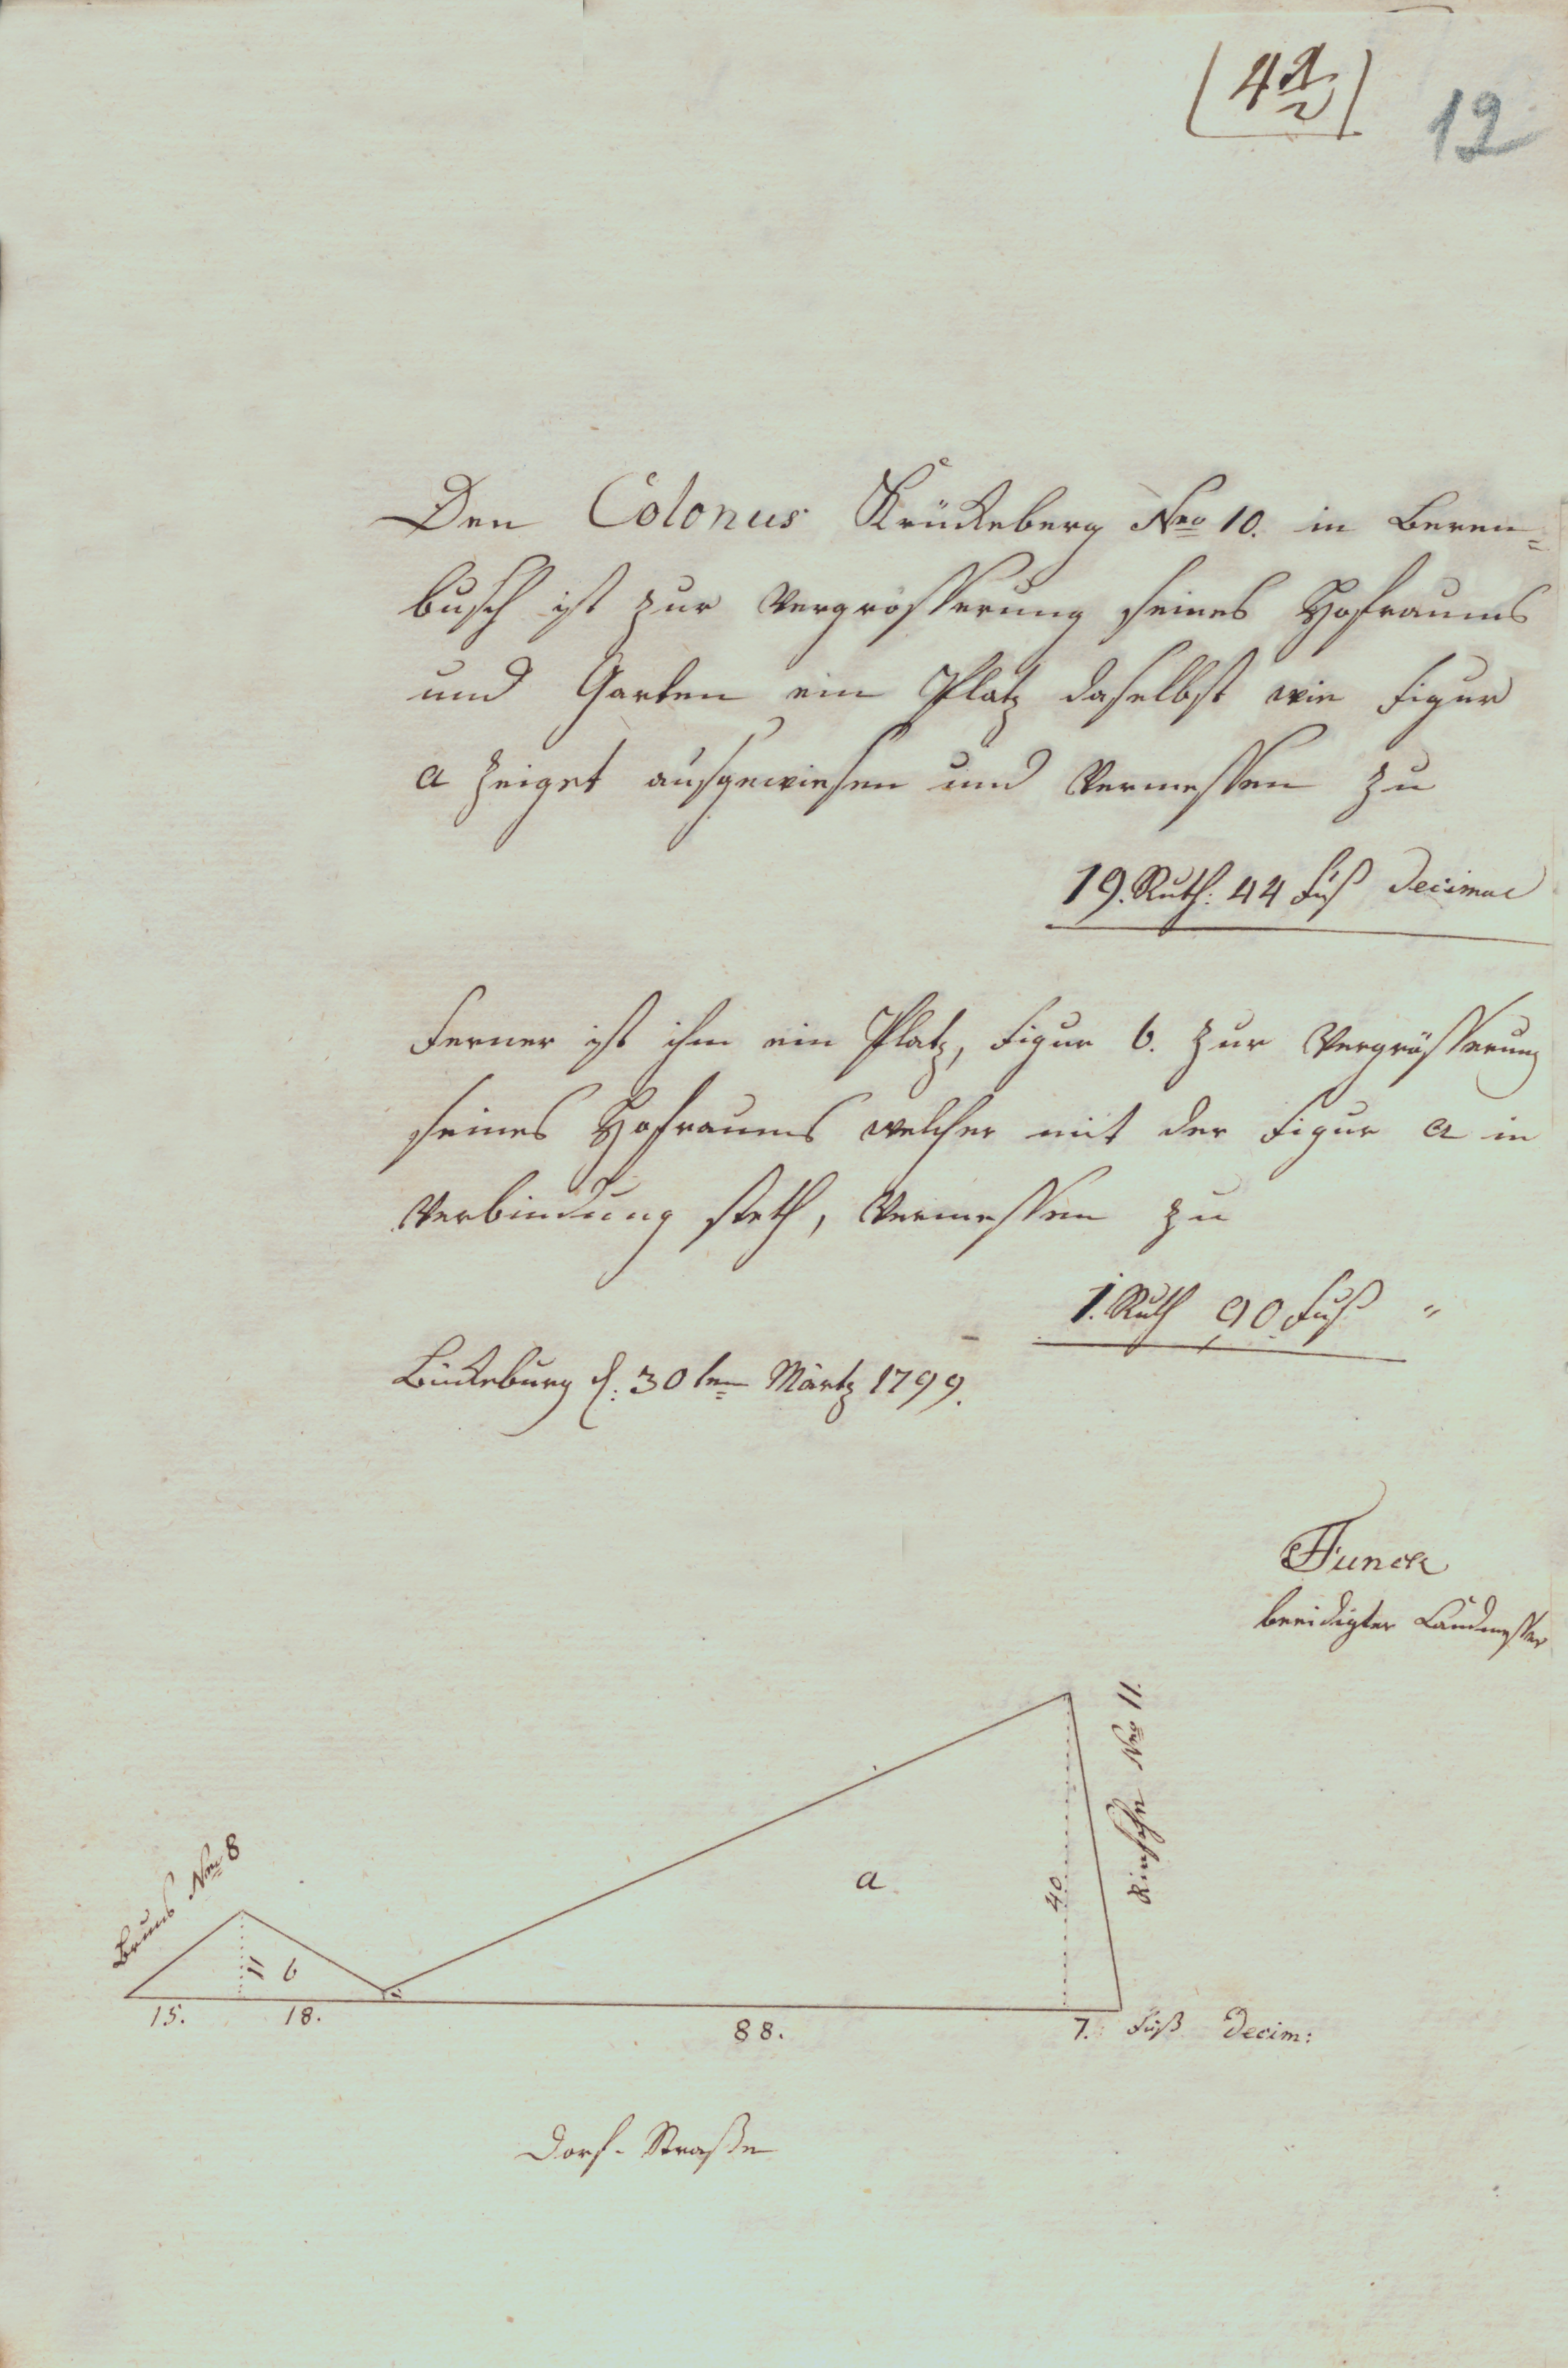 12
Den Colonus Krückeberg Nro 10. in Beren=
busch ist zur Vergrosserung seines Hofraums
und Garten ein Platz daselbst wie Figur
a zeiget ausgewiesen und Vermessen zu
19. Ruth: 44 Fuß Decimal
Ferner ist ihm ein Platz, Figur b. zur Vergrösserung
seines Hofraums welcher mit der Figur a in
Verbindung steth, Vermessen zu
1. Ruth 90 Fuß "
Bückeburg d. 30ten Märtz 1799.
Funck
beeidigter Landmesser
Bruns Nro 8
11 b
a
40
Nro 11.
15. 18. 88. 7. Fuß Decim:
Dorf-Straße